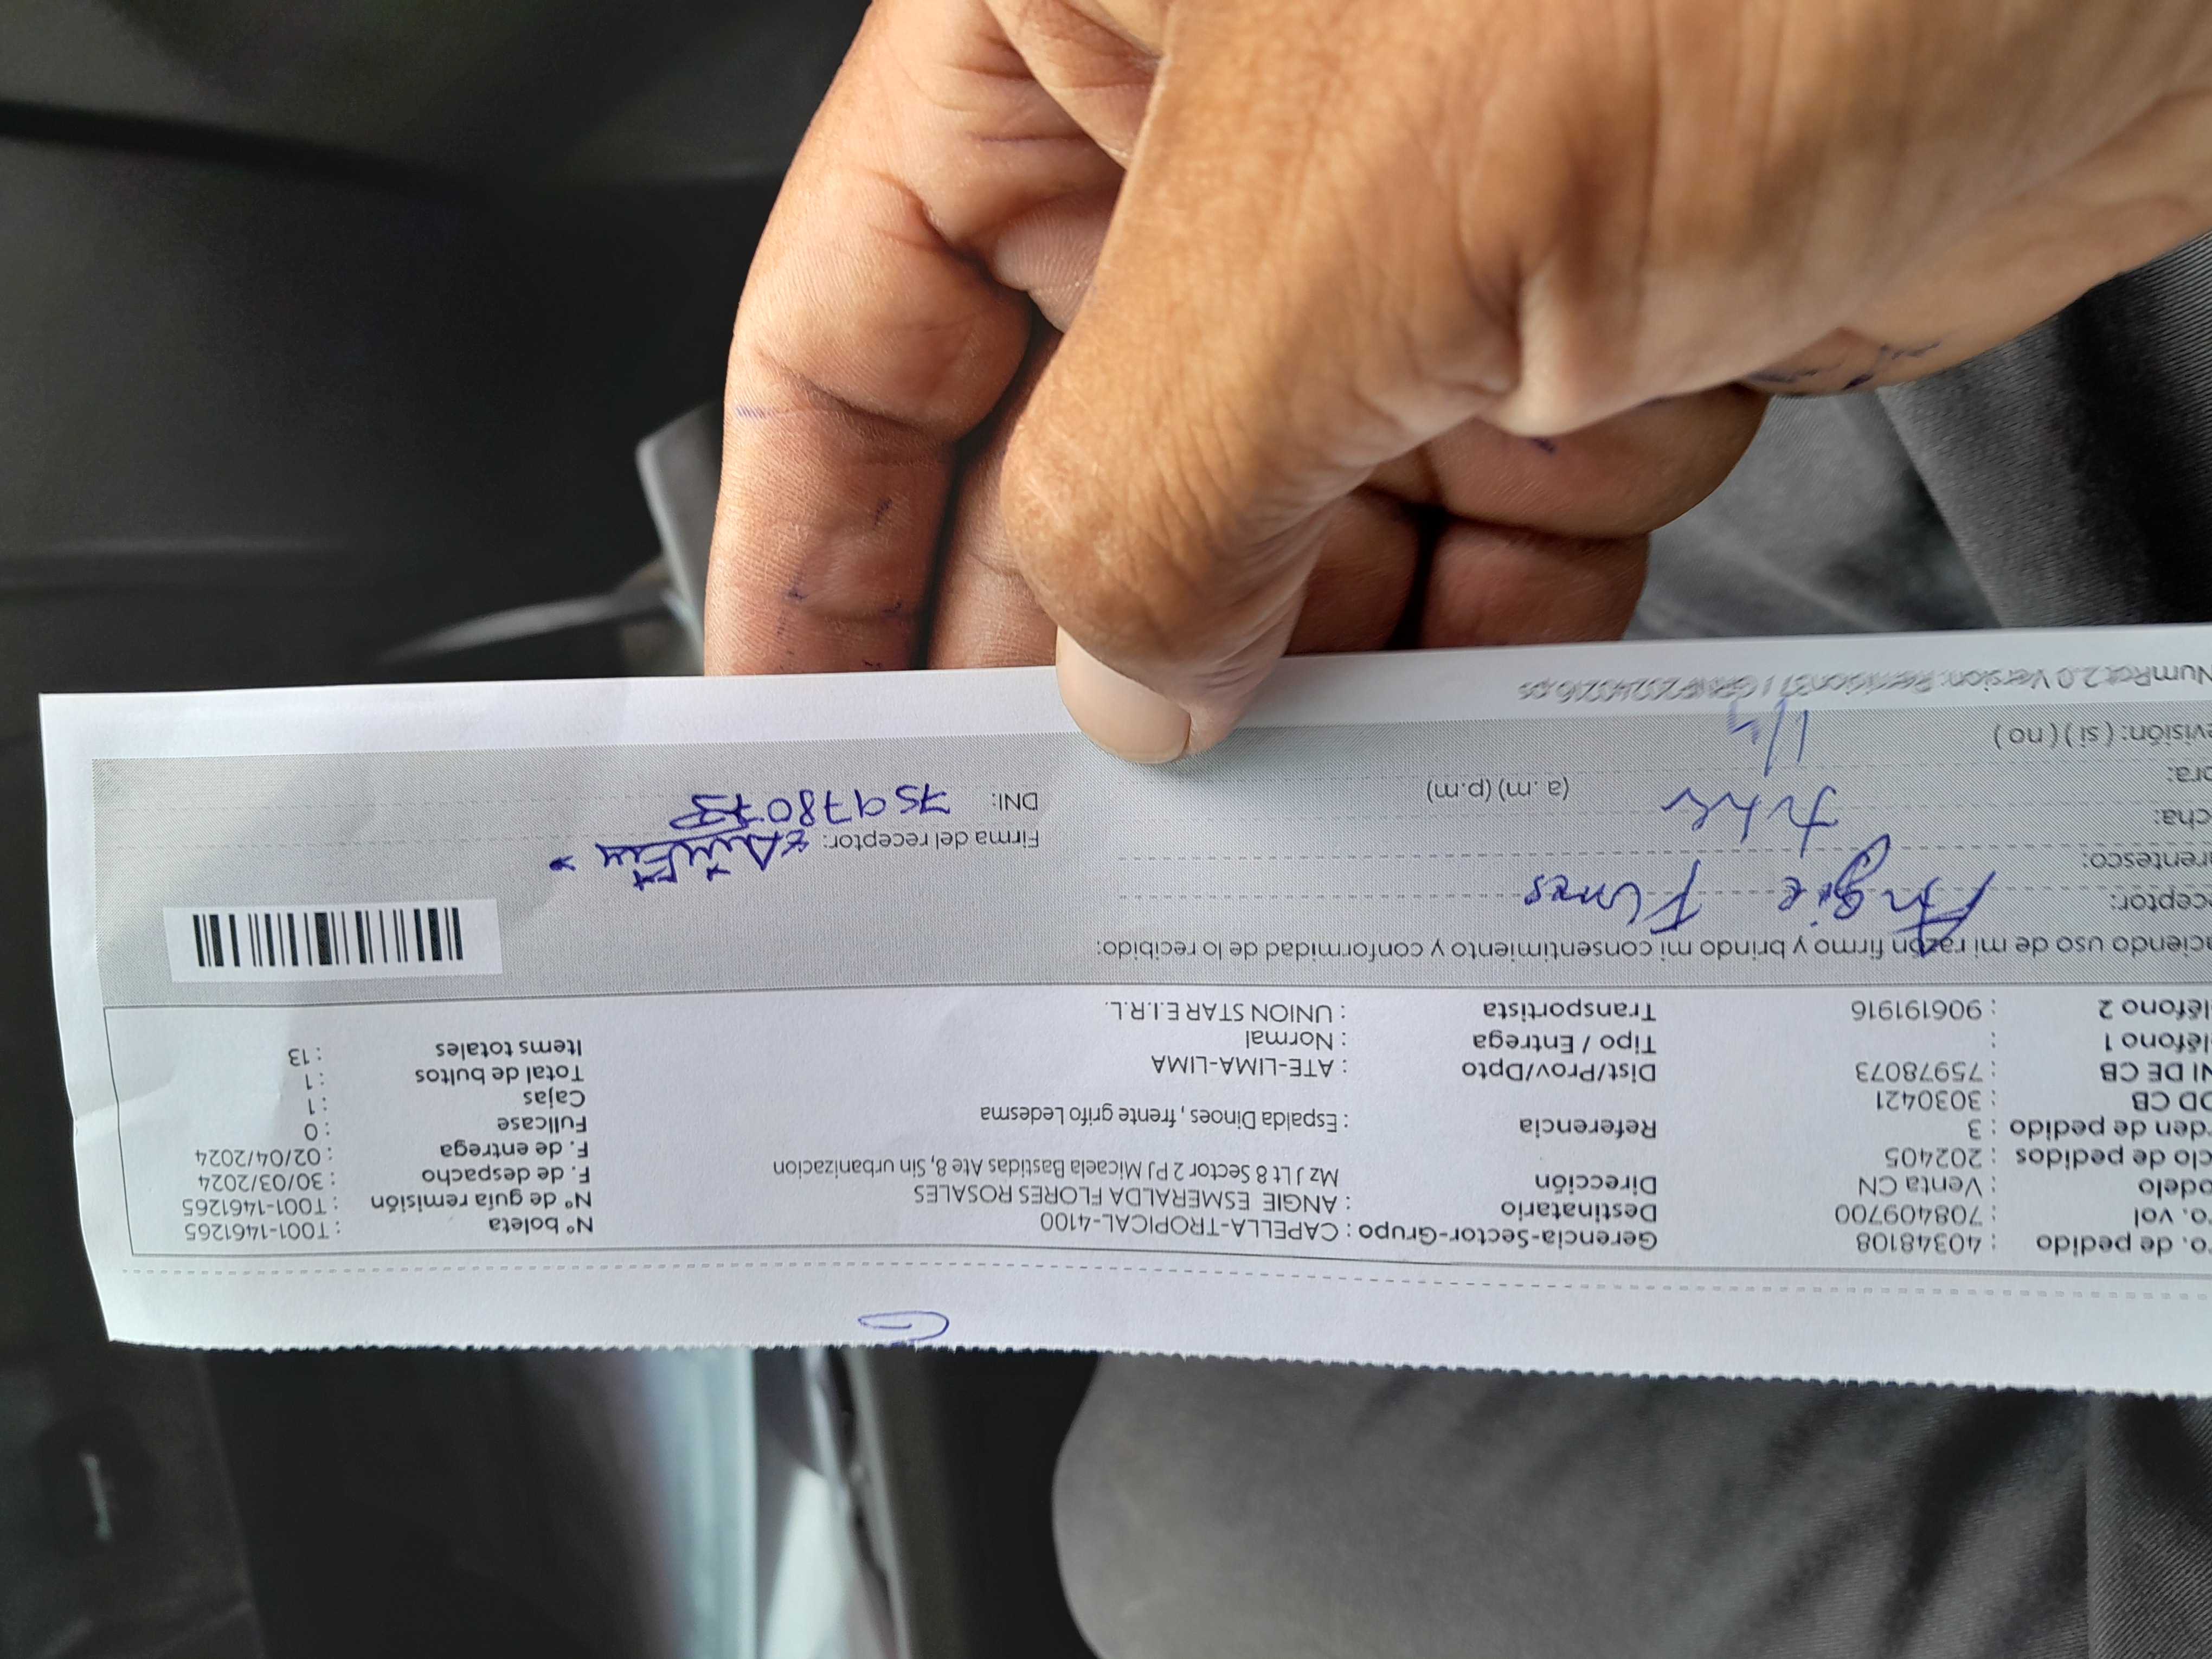 o. de pedido : 40348108 Gerencia-Sector-Grupo : CAPELLA-TROPICAL-4100 N° boleta : T001-1461265
o. vol : 708409700 Destinatario : ANGIE ESMERALDA FLORES ROSALES N° de guía remisión : T001-1461265
odelo : Venta CN Dirección Mz J Lt 8 Sector 2 PJ Micaela Bastidas Ate 8, Sin urbanizacion F. de despacho : 30/03/2024
clo de pedidos : 202405 F. de entrega : 02/04/2024
rden de pedido : 3 Referencia : Espalda Dinoes, frente grifo Ledesma Fullcase : 0
OD CB : 3030421 Cajas : 1
NI DE CB : 75978073 Dist/Prov/Dpto : ATE-LIMA-LIMA Total de bultos : 1
léfono 1 : Tipo / Entrega : Normal Items totales : 13
léfono 2 : 906191916 Transportista : UNION STAR E.I.R.L.
aciendo uso de mi razón firmo y brindo mi consentimiento y conformidad de lo recibido:
ceptor: Angie Flores
rentesco: Firma del receptor:
cha: DNI: 75978073
ora: (a.m) (p.m)
evisión: ( si ) ( no )
NumRot 2.0 Version: